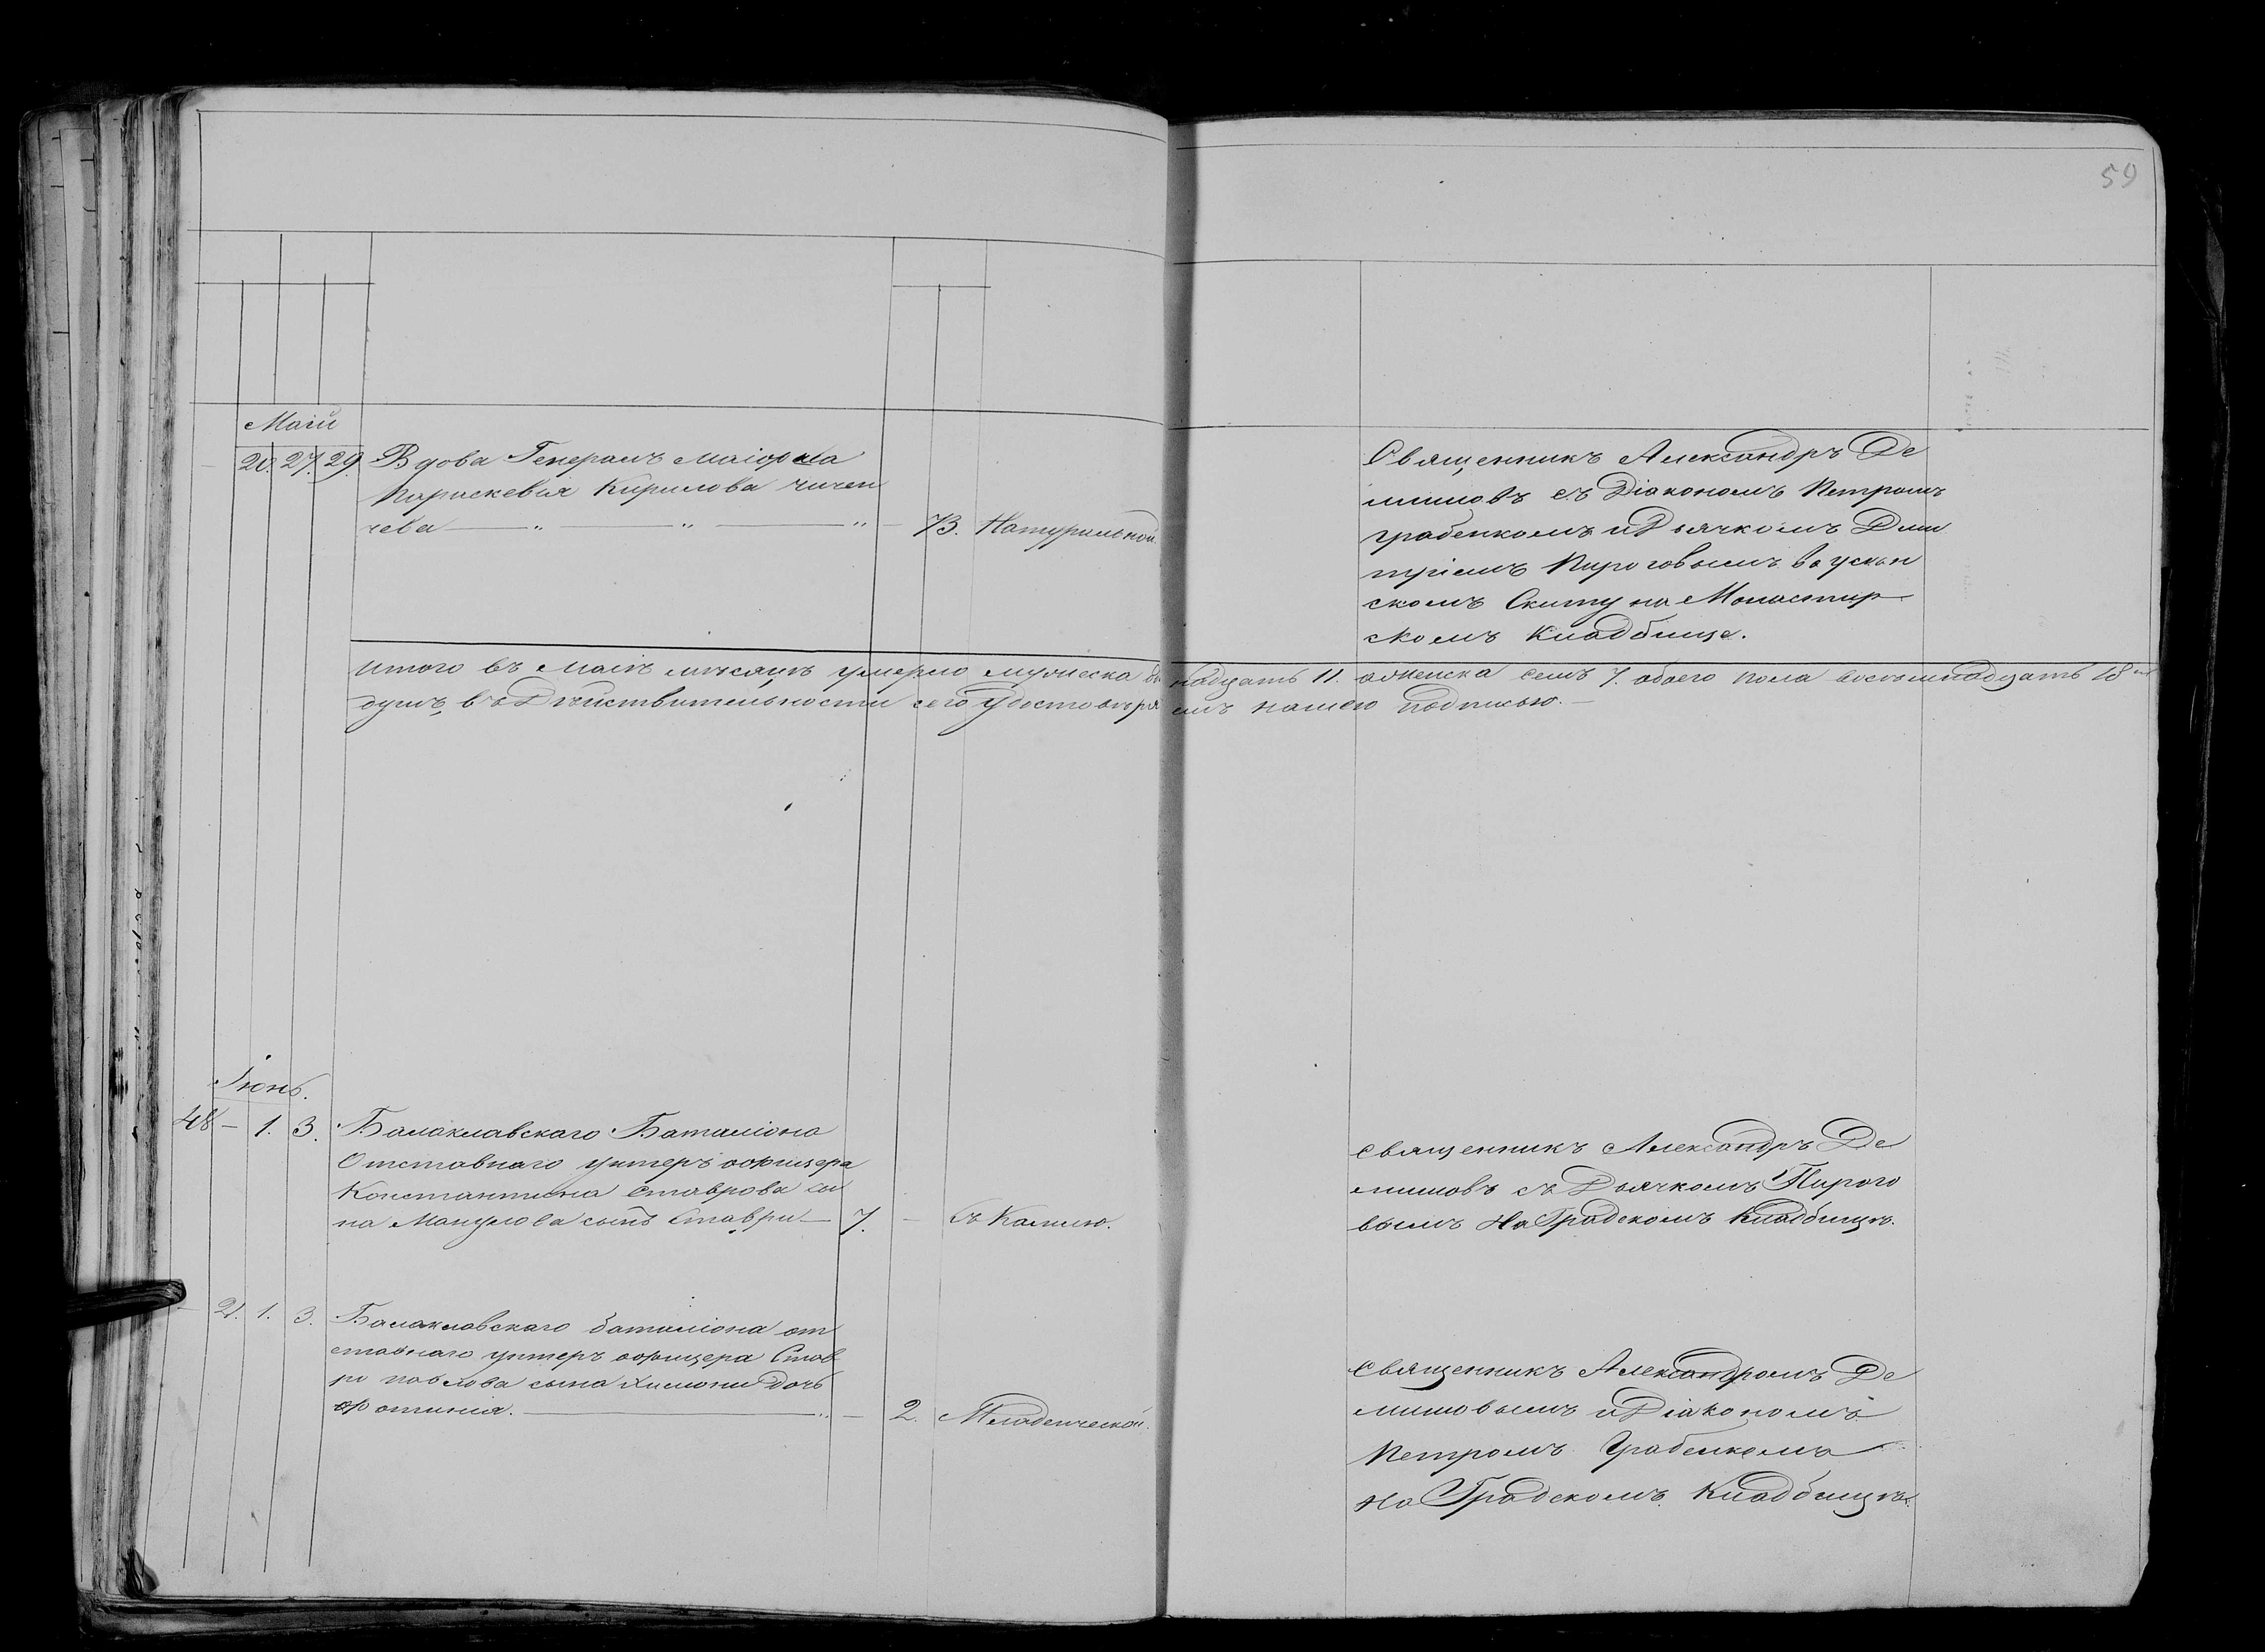 59
Маій
20. 27. 29. Вдова Генералъ Маіорша
Параскевія Кирилова Чичен
чева — „ — „ — „ — 73. Натуральной.
Священникъ Александръ Де
мишовъ съ Діакономъ Петромъ
Грабенкомъ и Дьячкомъ Дми
тріемъ Пироговымъ въ Успен
скомъ Скиту на Монастир
скомъ Кладбище.
Итого въ Маіе месяце умерло мужеска надцать 11. а женска семь 7. обоего пола восемьнадцать 18
душъ, въ Действительности сего удостоверяемъ нашею подписью. —
Іюнь.
48 — 1. 3. Балаклавскаго Баталіона
Отставнаго унтеръ офицера
Константина Ставрова сы
на Манулова сынъ Ставри — 7. — Съ Кашлю.
Священникъ Александръ Де
мишовъ съ Дьячкомъ Пирого
вымъ на Градскомъ Кладбищъ.
— 21. 1. 3. Балаклавскаго баталіона от
ставнаго унтеръ офицера Став
ри Павлова сына дочь
Фотинія. — „ — 2. Младенческой.
Священникъ Александромъ Де
мишовымъ и Діакономъ
Петромъ Грабенкомъ
на Градскомъ Кладбищъ.